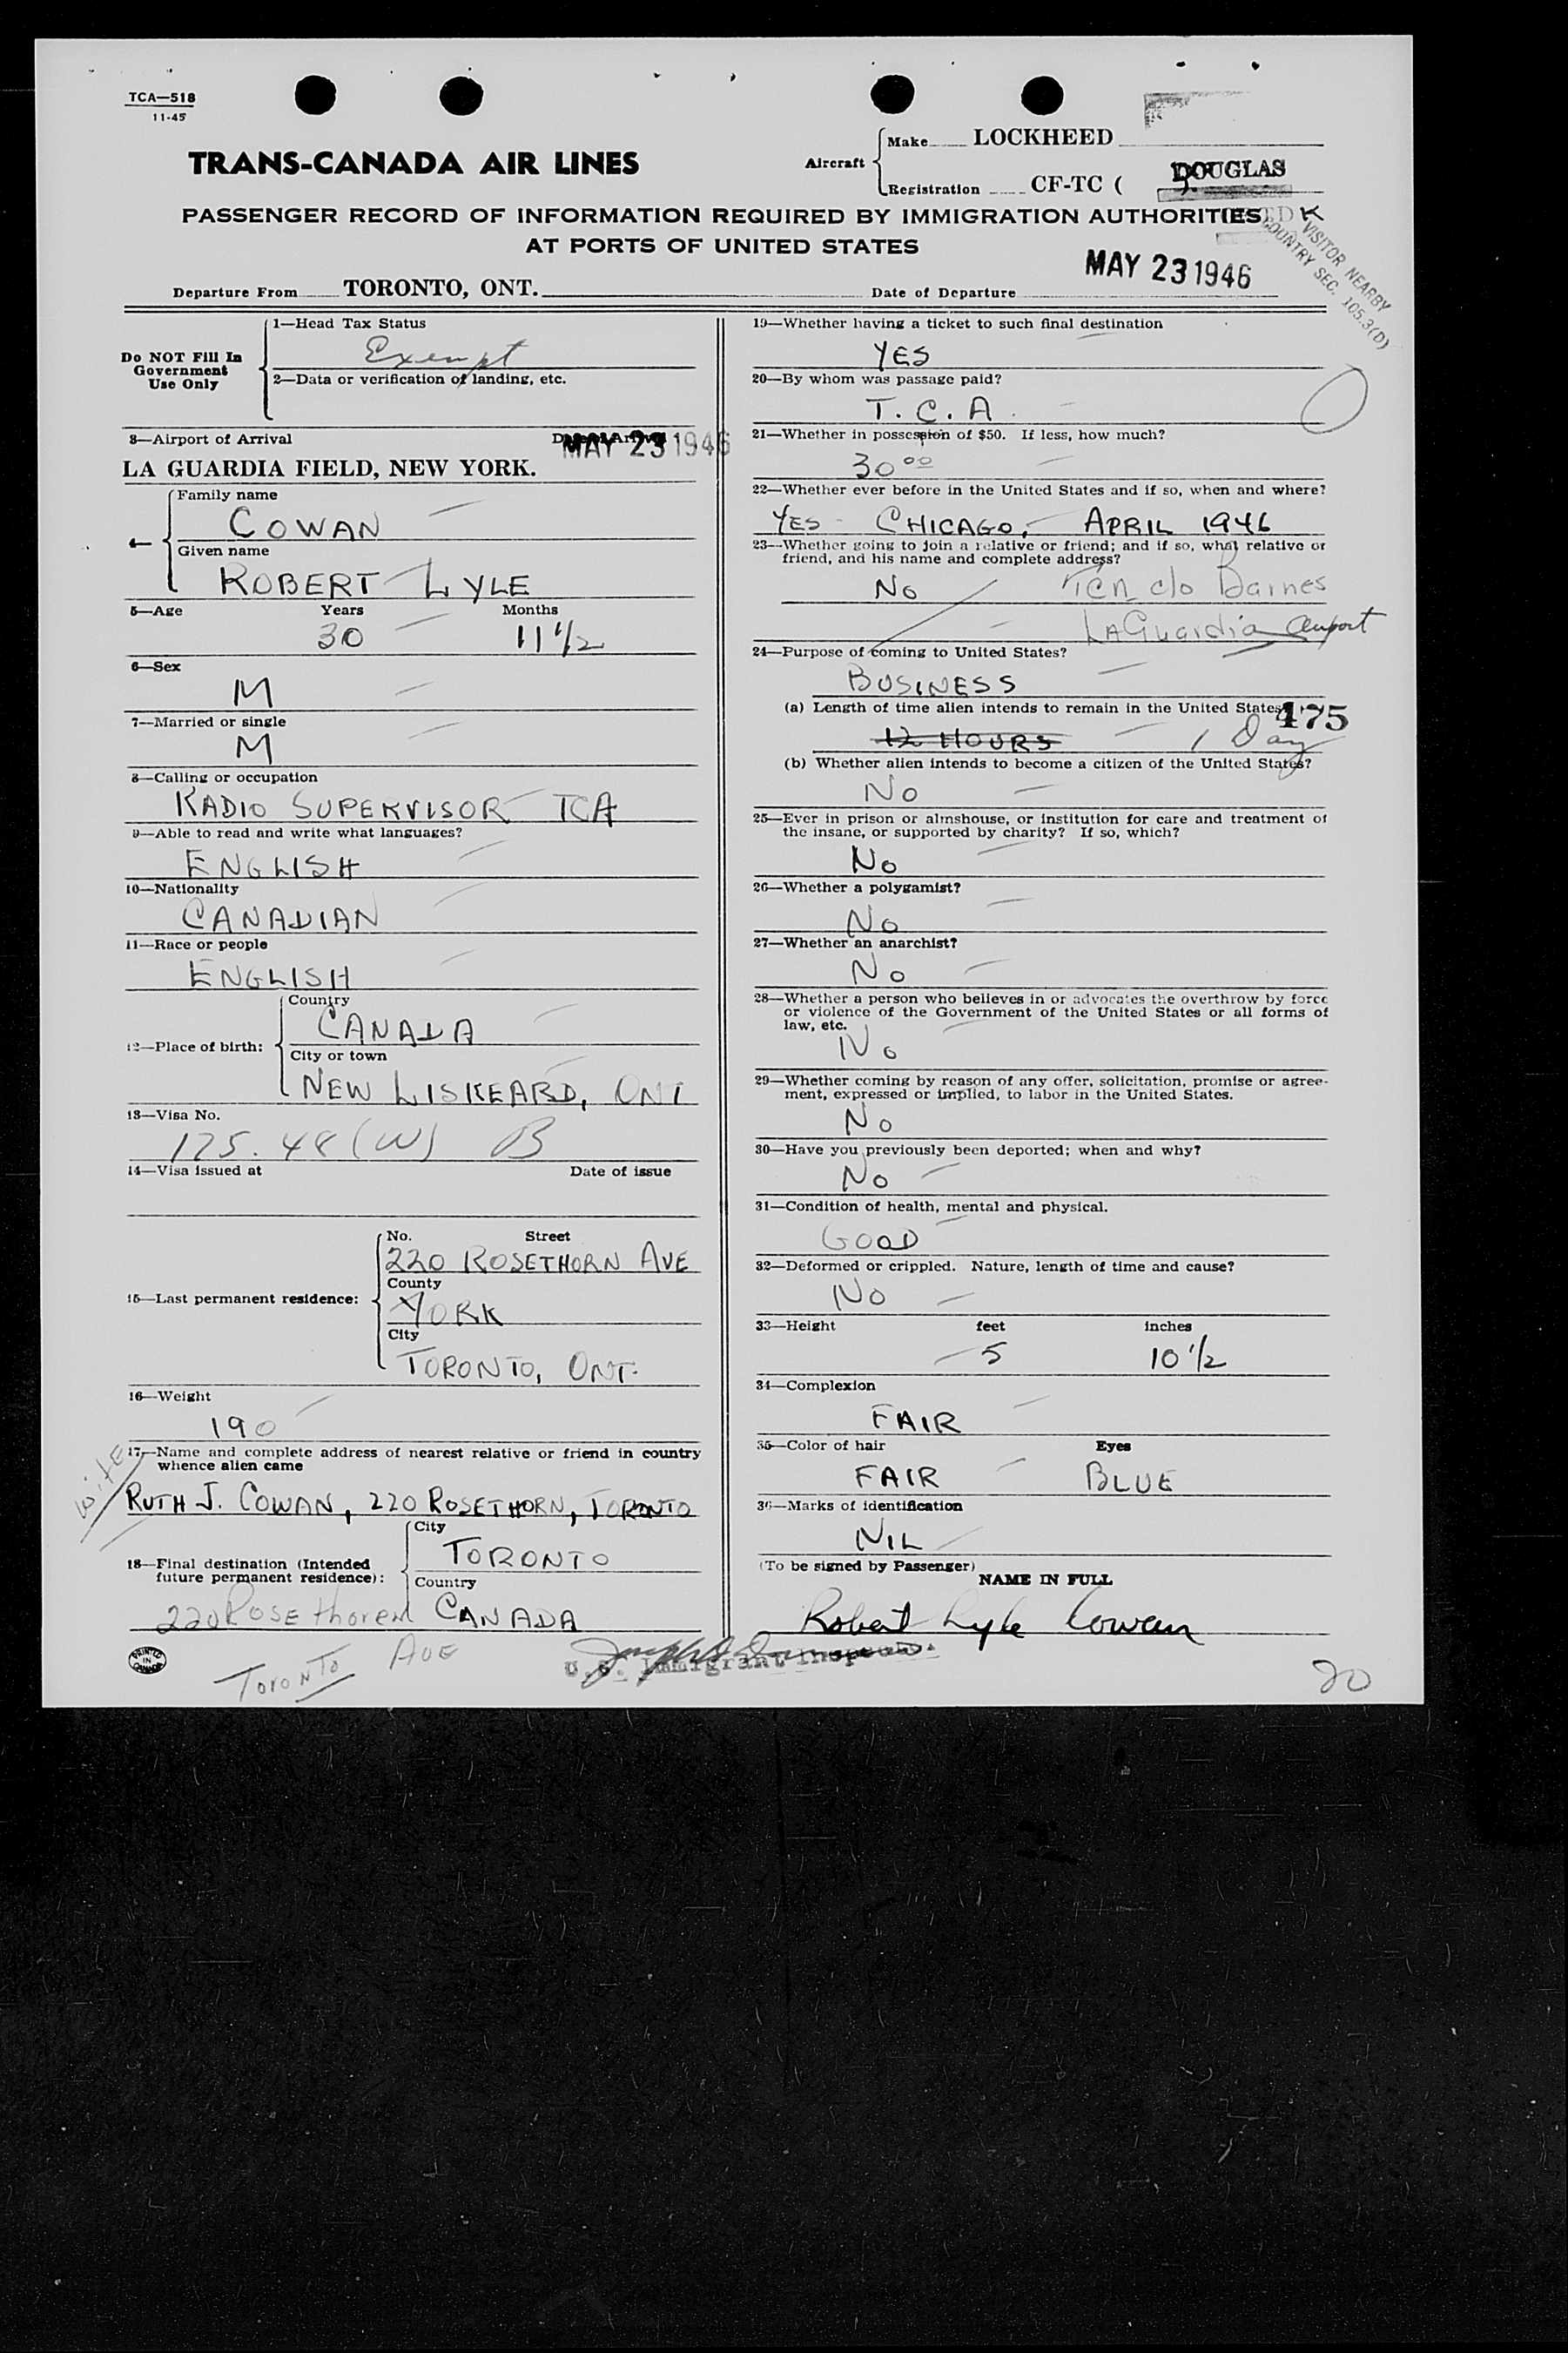 TCA—518
11-45
TRANS-CANADA AIR LINES
Aircraft
Make LOCKHEED
Registration CF-TC ( DOUGLAS
PASSENGER RECORD OF INFORMATION REQUIRED BY IMMIGRATION AUTHORITIES
AT PORTS OF UNITED STATES
VISITOR NEARBY
COUNTRY SEC. 105.3(D)
Departure From TORONTO, ONT. Date of Departure MAY 23 1946
Do NOT Fill In
Government
Use Only
1—Head Tax Status
Exempt
2—Data or verification of landing, etc.
3—Airport of Arrival Date of Arrival
MAY 23 1946
LA GUARDIA FIELD, NEW YORK.
4—
Family name
COWAN
Given name
ROBERT LYLE
5—Age Years Months
30 11 1/2
6—Sex
M
7—Married or single
M
8—Calling or occupation
RADIO SUPERVISOR TCA
9—Able to read and write what languages?
ENGLISH
10—Nationality
CANADIAN
11—Race or people
ENGLISH
12—Place of birth:
Country
CANADA
City or town
NEW LISKEARD, ONT
13—Visa No.
175.48 (W) B
14—Visa issued at Date of issue
15—Last permanent residence:
No. Street
220 ROSETHORN AVE
County
YORK
City
TORONTO, ONT.
16—Weight
190
17—Name and complete address of nearest relative or friend in country
whence alien came
wife
RUTH J. COWAN, 220 ROSETHORN, TORONTO
18—Final destination (Intended
future permanent residence):
City
TORONTO
Country
CANADA
220 Rosethoren
AVE
Toronto
PRINTED IN CANADA
U.S. Immigrant Inspector
19—Whether having a ticket to such final destination
YES
20—By whom was passage paid?
T.C.A.
21—Whether in possession of $50. If less, how much?
30 00
22—Whether ever before in the United States and if so, when and where?
YES - CHICAGO, - APRIL 1946
23—Whether going to join a relative or friend; and if so, what relative or
friend, and his name and complete address?
No TCA c/o Barnes
LaGuardia Airport
24—Purpose of coming to United States?
BUSINESS
(a) Length of time alien intends to remain in the United States?
475
12 HOURS 1 Day
(b) Whether alien intends to become a citizen of the United States?
No
25—Ever in prison or almshouse, or institution for care and treatment of
the insane, or supported by charity? If so, which?
No
26—Whether a polygamist?
No
27—Whether an anarchist?
No
28—Whether a person who believes in or advocates the overthrow by force
or violence of the Government of the United States or all forms of
law, etc.
No
29—Whether coming by reason of any offer, solicitation, promise or agree-
ment, expressed or implied, to labor in the United States.
No
30—Have you previously been deported; when and why?
No
31—Condition of health, mental and physical.
GOOD
32—Deformed or crippled. Nature, length of time and cause?
No
33—Height feet inches
5 10 1/2
34—Complexion
FAIR
35—Color of hair Eyes
FAIR BLUE
36—Marks of identification
NIL
(To be signed by Passenger)
NAME IN FULL
Robert Lyle Cowan
20